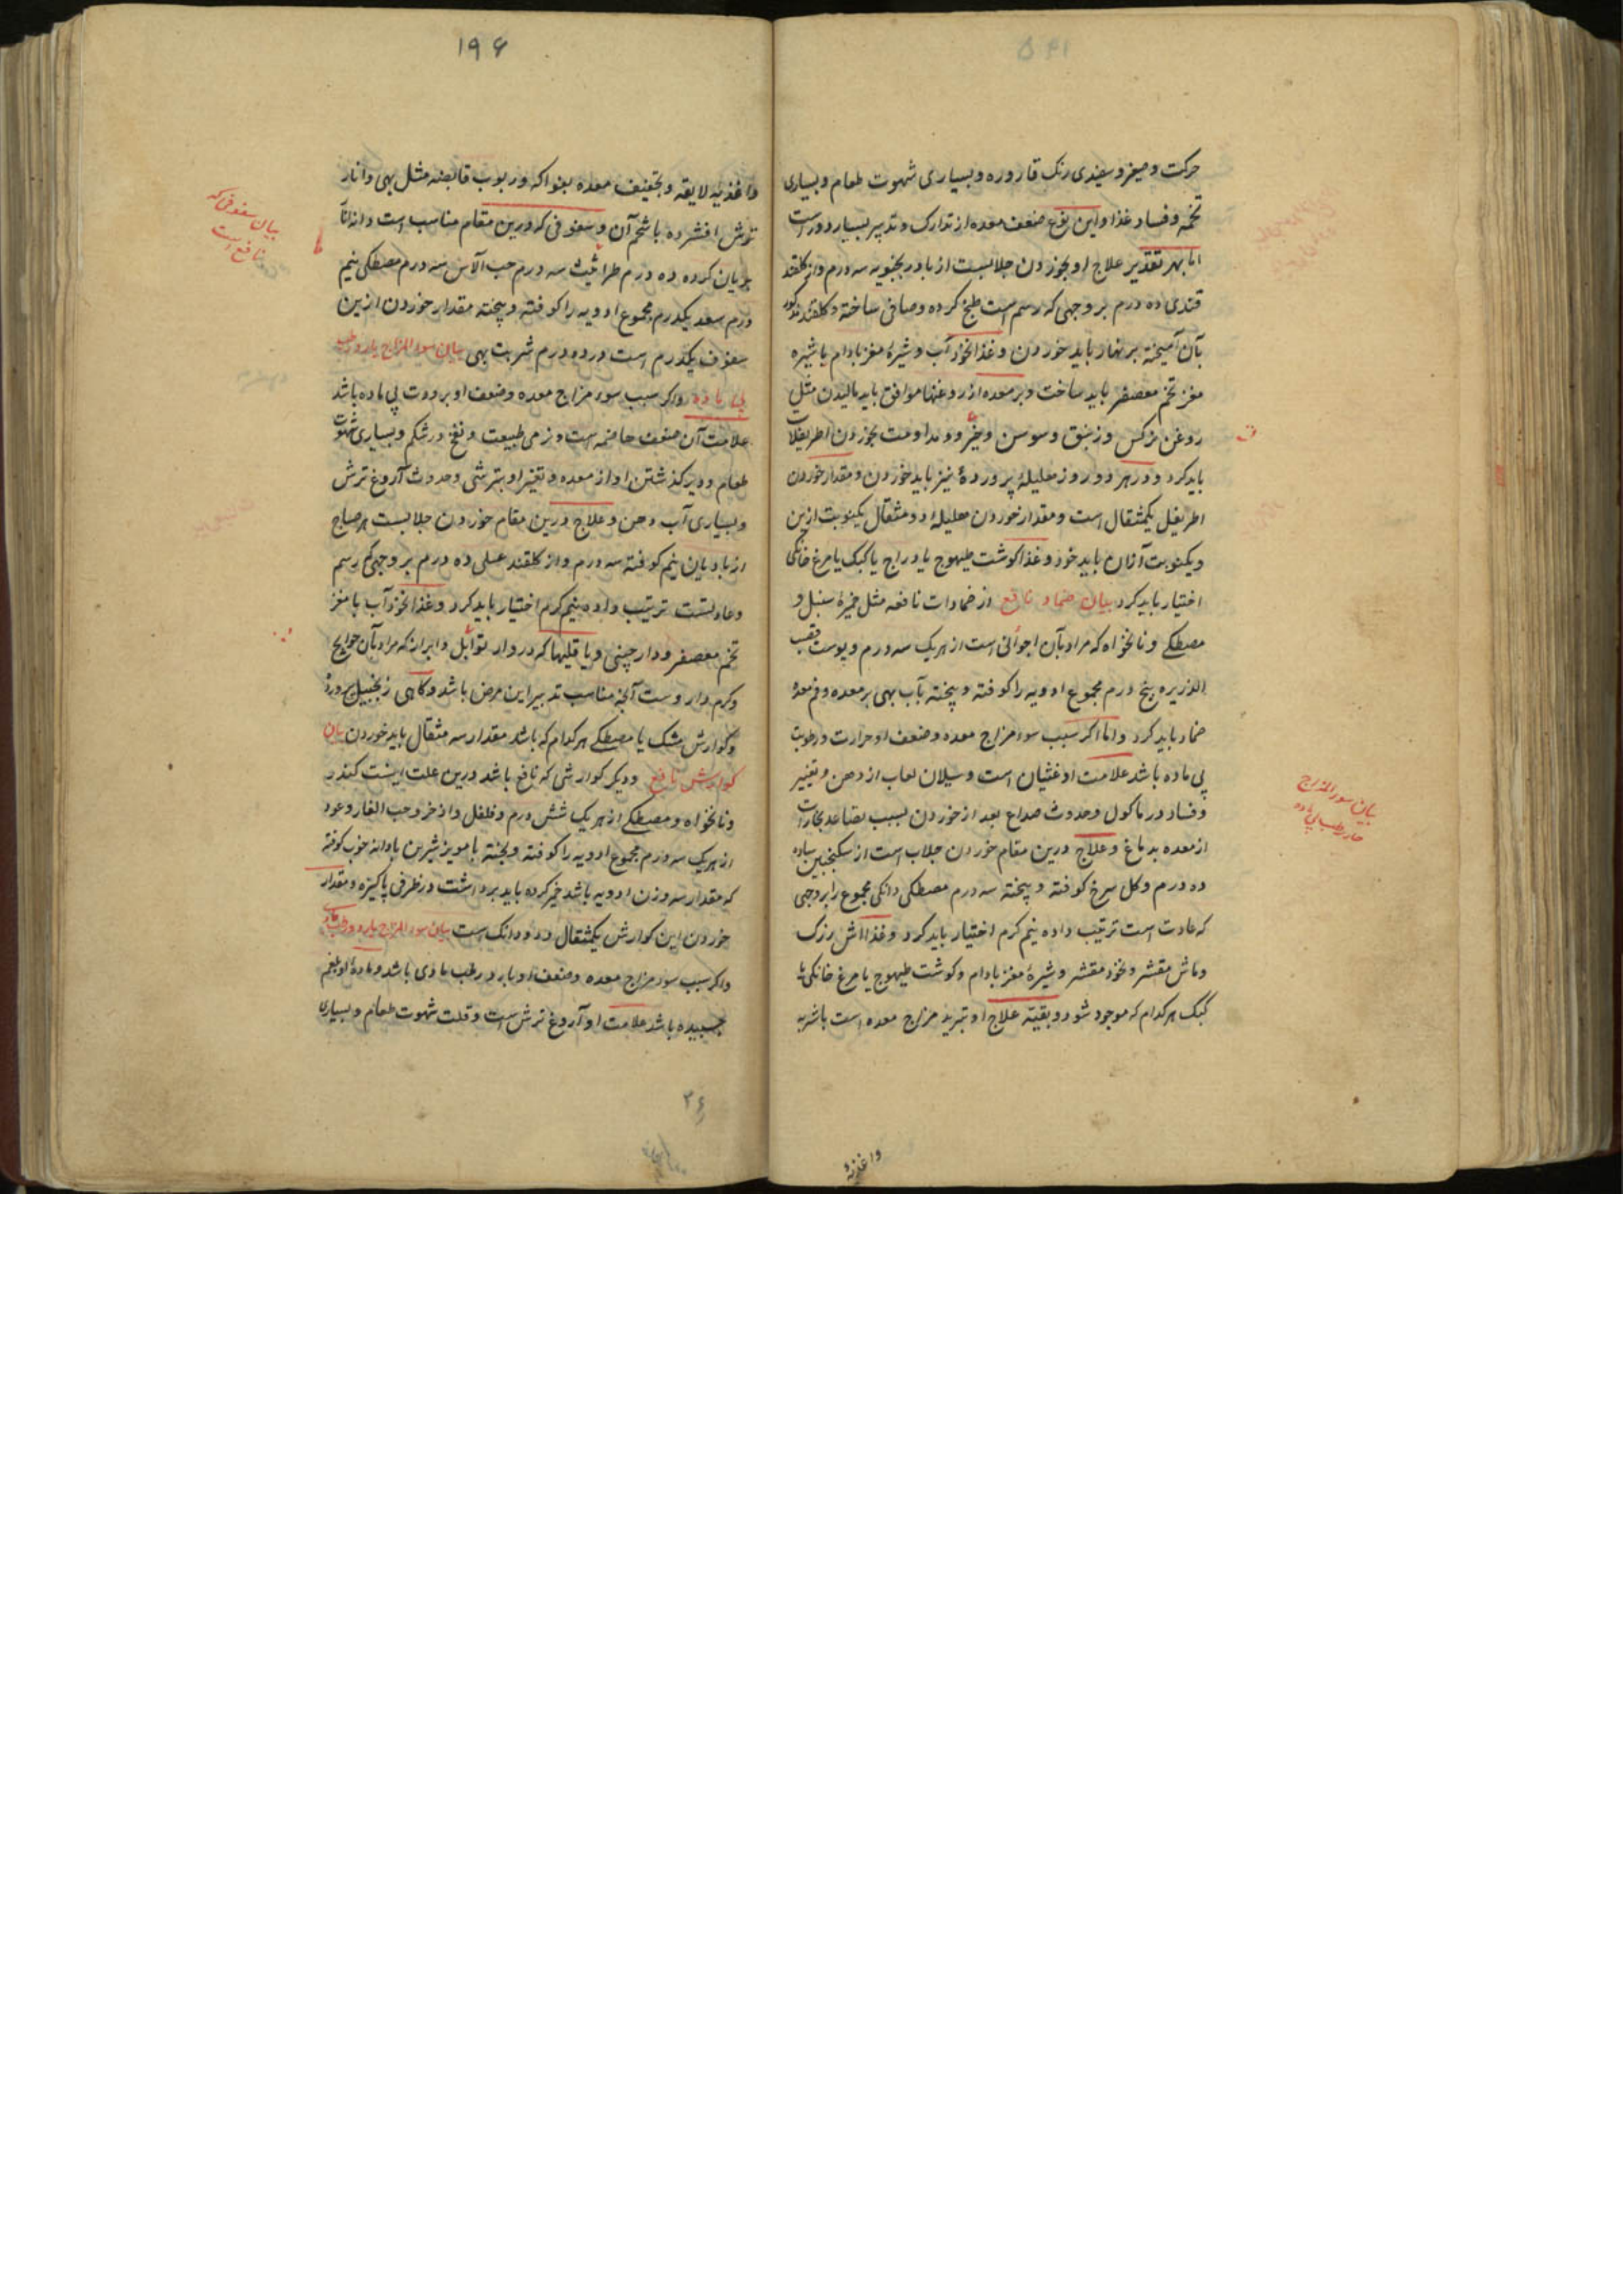 حرکت و صیفر و سفیدی رنک قاروره و بسیاری شهوت طعام و بسیاری
تخمه و فساد غذا و این نوع ضعف معده از تدارک و تدبیر بسیار دور است
اما بهر تقدیر علاج او بخوردن جلابست از بادرنجبویه سه درم و از کلقند
قندی ده درم بر وجهی که رسم است طبخ کرده و صافی ساخته و کلقند مذکور
بآن آمیخته بر نهار باید خوردن و غذا نخودآب و شیرۀ مغز بادام یا شیره
مغز تخم معصفر باید ساخت و بر معده از روغنها موافق باید مالیدن مثل
روغن نرکس و زنبق و سوسن و خیری و مداومت بخوردن اطریفلات
باید کرد و در هر دو روز هلیلۀ پرورده نیز باید خوردن و مقدار خوردن
اطریفل یکمثقال است و مقدار خوردن هلیله دو مثقال یکنوبت ازین
و یکنوبت ازان باید خورد و غذا کوشت طیهوج یا دراج یا کبک یا مرغ خانکی
اختیار باید کرد بیان ضماد نافع از ضمادات نافعه مثل خیرۀ سنبل و
مصطکی و نانخواه که مراد بآن اجوائن است از هریک سه درم و پوست قصب
الذریره پنج درم مجموع ادویه را کوفته و پیخته بآب بهی بر معده و فم معده
ضماد باید کرد و اما اکر سبب سوء مزاج معده و ضعف او حرارت و رطوبت
بی ماده باشد علامت او غثیان است و سیلان لعاب از دهن و تغییر
و فساد در ماکول و حدوث صداع بعد از خوردن بسبب تصاعد بخارات
از معده بدماغ و علاج درین مقام خوردن جلاب است از سکنجبین ساده
ده درم و کل سرخ کوفته و پیخته سه درم مصطکی دانکی مجموع را بر وجهی
که عادت است ترتیب داده نیم کرم اختیار باید کرد و غذا آش زرک
و ماش مقشر و نخود مقشر و شیرۀ مغز بادام و کوشت طیهوج یا مرغ خانکی یا
کبک هر کدام که موجود شود و بقیه علاج او تبرید مزاج معده است باشربه
واغذیه
بیان سوء المزاج
حار رطب بی ماده
۱۹۶
واغذیه لایقه و تجفیف معده بفواکه و ربوب قابضه مثل بهی و انار
ترش افشرده باشحم آن و سفوفی که درین مقام مناسب است دانۀ انار
بریان کرده ده درم طراثیث سه درم حب الآس سه درم مصطکی نیم
درم سعد یکدرم مجموع ادویه را کوفته و پیخته مقدار خوردن ازین
سفوف یکدرم است در ده درم شربت بهی بیان سوء المزاج بارد رطب
بی ماده و اکر سبب سوء مزاج معده و ضعف او برودت بی ماده باشد
علامت آن ضعف هاضمه است و نرمی طبیعت و نفخ در شکم و بسیاری شهوت
طعام و دیر کذشتن او از معده و تغیر او بترشی و حدوث آروغ ترش
و بسیاری آب دهن و علاج درین مقام خوردن جلابست هر صباح
از بادیان نیم کوفته سه درم و از کلقند عسلی ده درم بر وجهی که رسم
و عادتست ترتیب داده نیم کرم اختیار باید کرد و غذا نخودآب با مغز
تخم معصفر و دارچینی و یا قلیها که در وار توابل و ابزار که مراد بآن حوایج
و کرم دار وست آنچه مناسب تدبیر این مرض باشد و کاهی زنجبیل پرورده
و کوارش مشک یا مصطکی هر کدام که باشد مقدار سه مثقال باید خوردن بیان
کوارش نافع و دیکر کوارشی که نافع باشد درین علت اینست کندر
و نانخواه و مصطکی از هر یک شش درم و فلفل و اذخر و حب الغار و عود
از هریک سه درم مجموع ادویه را کوفته و پخته با مویز شیرین بادانه خوب کوفته
که مقدار سه وزن ادویه باشد خمیر کرده باید برداشت در ظرفی پاکیزه و مقدار
خوردن این کوارش یکمثقال و دو دانک است بیان سوء المزاج بارد رطب مادی
و اکر سبب سوء مزاج معده و ضعف او بارد رطب مادی باشد و مادۀ او بلغم
چسبیده باشد علامت او آروغ ترش است و قلت شهوت طعام و بسیاری
بیان سفوفی که
نافع است
۳۶